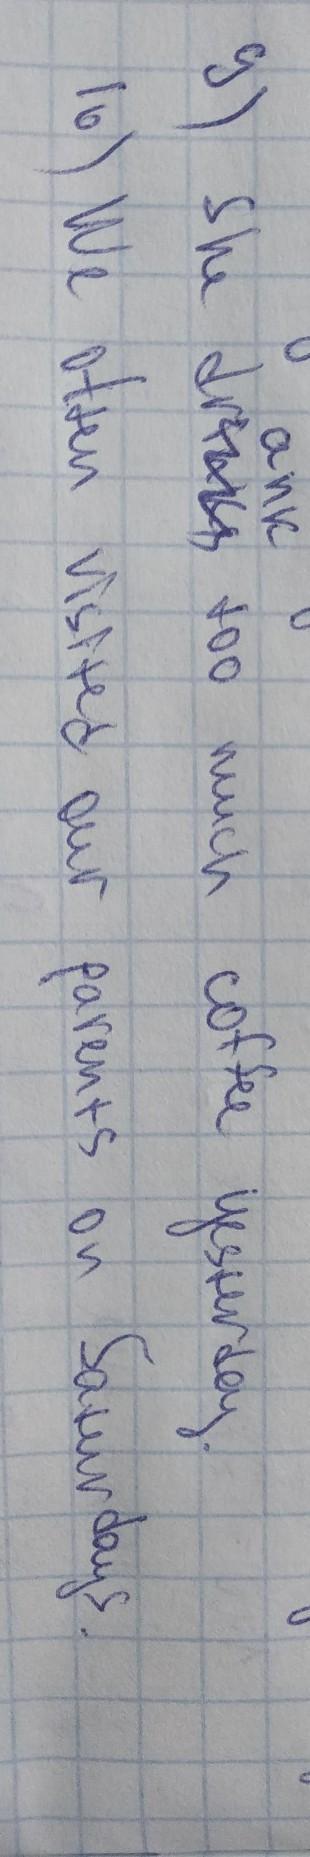 9) She drank too much coffee yesterday.
10) We often visited our parents on Saturdays.